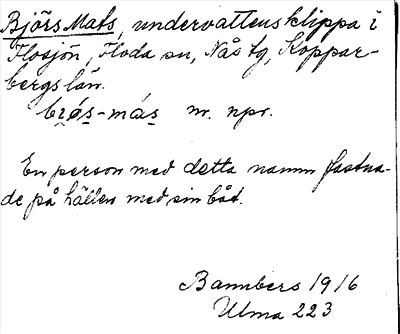 Björs Mats, undervattensklippa i
Flosjön, Floda sn, Nås tg, Koppar-
bergs län.
bjǿs-más m. npr.
En person med detta namn fastna-
de på hällen med sin båt.
Bannbers 1916
Ulma 223